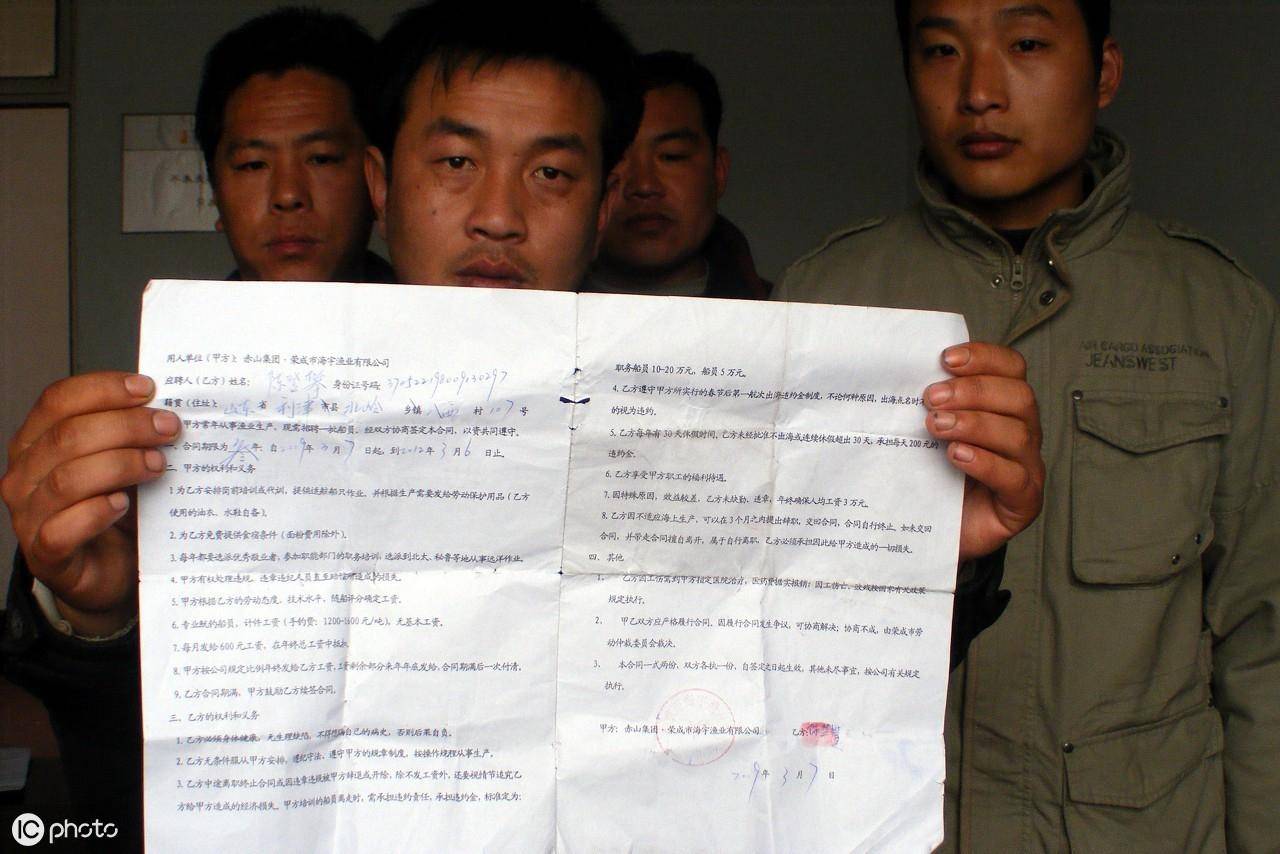 用人单位（甲方）：赤山集团·荣成市海宇渔业有限公司
应聘人（乙方）姓名： 身份证号码：370522198009130297
籍贯（住址）：山东省利津市县北岭乡镇 西村107号
甲方常年从事渔业生产，现需招聘一批船员，经双方协商签定本合同，以资共同遵守。
一、合同期限为叁年：自2009年3月7日起，到2012年3月6日止。
二、甲方的权利和义务
1 为乙方安排岗前培训或代训，提供适航船只作业，并根据生产需要发给劳动保护用品（乙方
使用的油衣、水鞋自备）。
2. 为乙方免费提供食宿条件（面粉费用除外）。
3. 每年都要选派优秀敬业者，参加职能部门的职务培训，选派到北太、秘鲁等地从事远洋作业。
4. 甲方有权处理违规、违章违纪人员直至赔偿所造成的损失。
5. 甲方根据乙方的劳动态度、技术水平，随船评分确定工资。
6. 专业鱿钓船员，计件工资（手钓费：1200-1600元/吨），无基本工资。
7. 每月发给600元工资，在年终总工资中抵扣
8. 甲方按公司规定比例年终发给乙方工资，工资剩余部分来年年底发给，合同期满后一次付清。
9. 乙方合同期满，甲方鼓励乙方续签合同。
三、乙方的权利和义务
1. 乙方必须身体健康，无生理缺陷，不得隐瞒自己的病史，否则后果自负。
2. 乙方无条件服从甲方安排，遵纪守法、遵守甲方的规章制度，按操作规程从事生产。
3. 乙方中途离职终止合同或因违章违规被甲方辞退或开除，除不发工资外，还要视情节追究乙
方给甲方造成的经济损失。甲方培训的船员离走时，需承担违约责任，承担违约金，标准定为：
职务船员10-20万元，船员5万元。
4. 乙方遵守甲方所实行的春节后第一航次出海违约金制度，不论何种原因，出海点名时不
的视为违约。
5. 乙方每年有30天休假时间，乙方未经批准不出海或连续休假超出30天，承担每天200元的
违约金。
6. 乙方享受甲方职工的福利待遇。
7. 因特殊原因，效益较差，乙方未缺勤、违章，年终确保人均工资3万元。
8. 乙方因不适应海上生产，可以在3个月之内提出辞职，交回合同，合同自行终止。如未交回
合同，并带走合同擅自离开，属于自行离职，乙方必须承担因此给甲方造成的一切损失。
四、其他
1. 乙方因工伤需到甲方指定医院治疗，医药费据实报销；因工伤亡、致残按国家有关政策
规定执行。
2. 甲乙双方应严格履行合同。因履行合同发生争议，可协商解决；协商不成，由荣成市劳
动仲裁委员会裁决。
3. 本合同一式两份，双方各执一份，自签定之日起生效，其他未尽事宜，按公司有关规定
执行。
甲方：赤山集团·荣成市海宇渔业有限公司 乙方：
2009年3月7日
AIR CARGO ASSOCIATION
JEANSWEST
IC photo